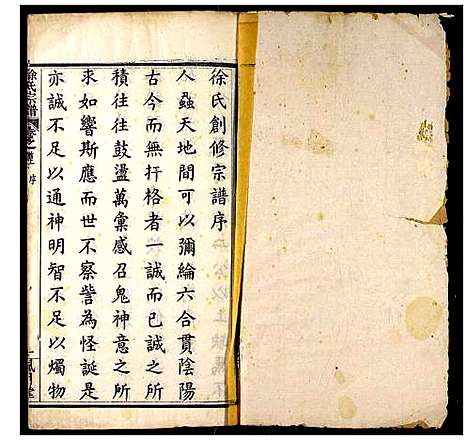 徐氏創修宗譜序
人蝨天地間可以彌綸六合貫陰陽
古今而無扞格者一誠而已誠之所
積往往鼓盪萬彙感召鬼神意之所
求如響斯應而世不察訾為怪誕是
亦誠不足以通神明智不足以燭物
徐氏宗譜
序